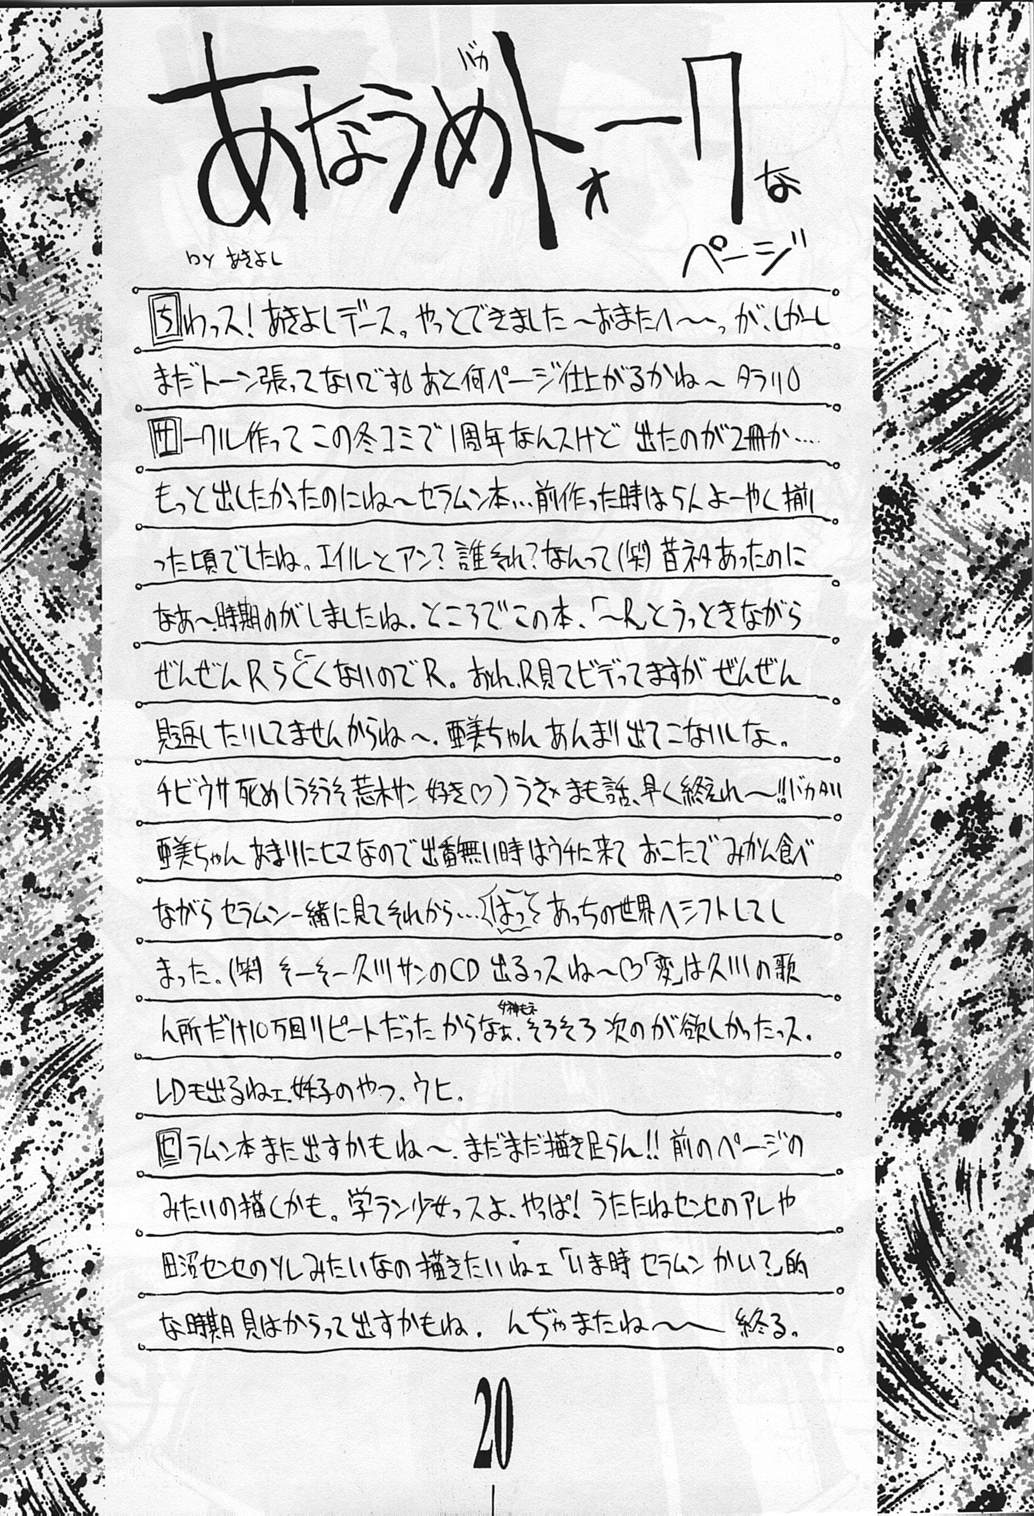 バカ
あなうめトォークな
ページ
by あきよし
ちわっス!あきよしデース。やっとできました〜おまたへ〜〜っ が、しかーし
まだトーン張ってないです あと何ページ仕上がるかね〜 タラリ
サークル作って この冬コミで1周年なんスけど 出たのが2冊か…
もっと出したかったのにね〜セラムン本…前作った時は5人よーやく揃
った頃でしたね。エイルとアン?誰それ?なんって(笑)昔ネタあったのに
なあ〜、時期のがしましたね。ところでこの本、「〜R」とうっときながら
ぜんぜんRらしくないのでR。おれ、R見てビデってますが ぜんぜん
見返したりしてませんからね〜、亜美ちゃん あんまり出てこないしな。
チビウサ死め(うそうそ荒木サン 好き♡)うさ×まも話、早く終れ〜!!バカタリ
亜美ちゃん あまりにヒマなので出番無い時はウチに来て おこたでみかん食べ
ながら セラムン一緒に見てそれから…はっ あっちの世界へシフトしてし
まった。(笑) そーそー久川サンのCD 出るっスね〜♡「変」は久川の歌
ん所だけ10万回リピートだった からなぁ、そろそろ 次のが欲しかったっス。
LDも出るねェ、妖子のやつ、ウヒ。
セラムン本また出すかもね〜、まだまだ描き足らん!!前のページの
みたいの描くかも。学ラン少女っスよ、やっぱ!うたたねセンセのアレや
田沼センセのソレみたいなの描きたいねェ「いま時 セラムン かい?」的
な時期 見はからって出すかもね。 んぢゃまたね〜〜 終る。
20